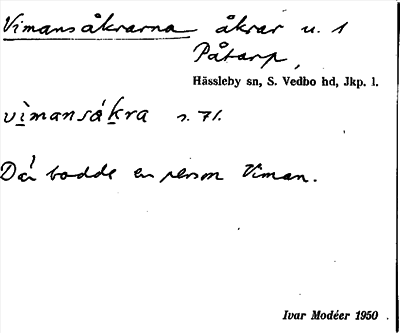 Vimansåkrarna åkrar u. 1
Påtarp,
Hässleby sn, S. Vedbo hd, Jkp. l.
vìmansákra s. 71.
Där bodde en person Viman.
Ivar Modéer 1950